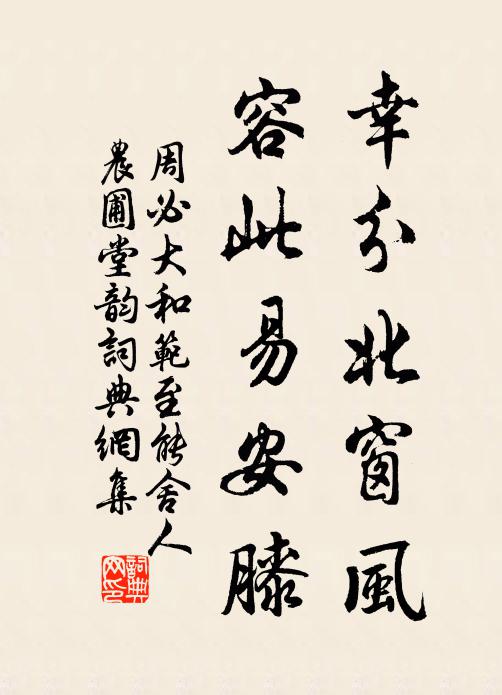 幸分北窗風
容此易安膝
周必大和範至能舍人
農圃堂韵詞典網集
詞典网印